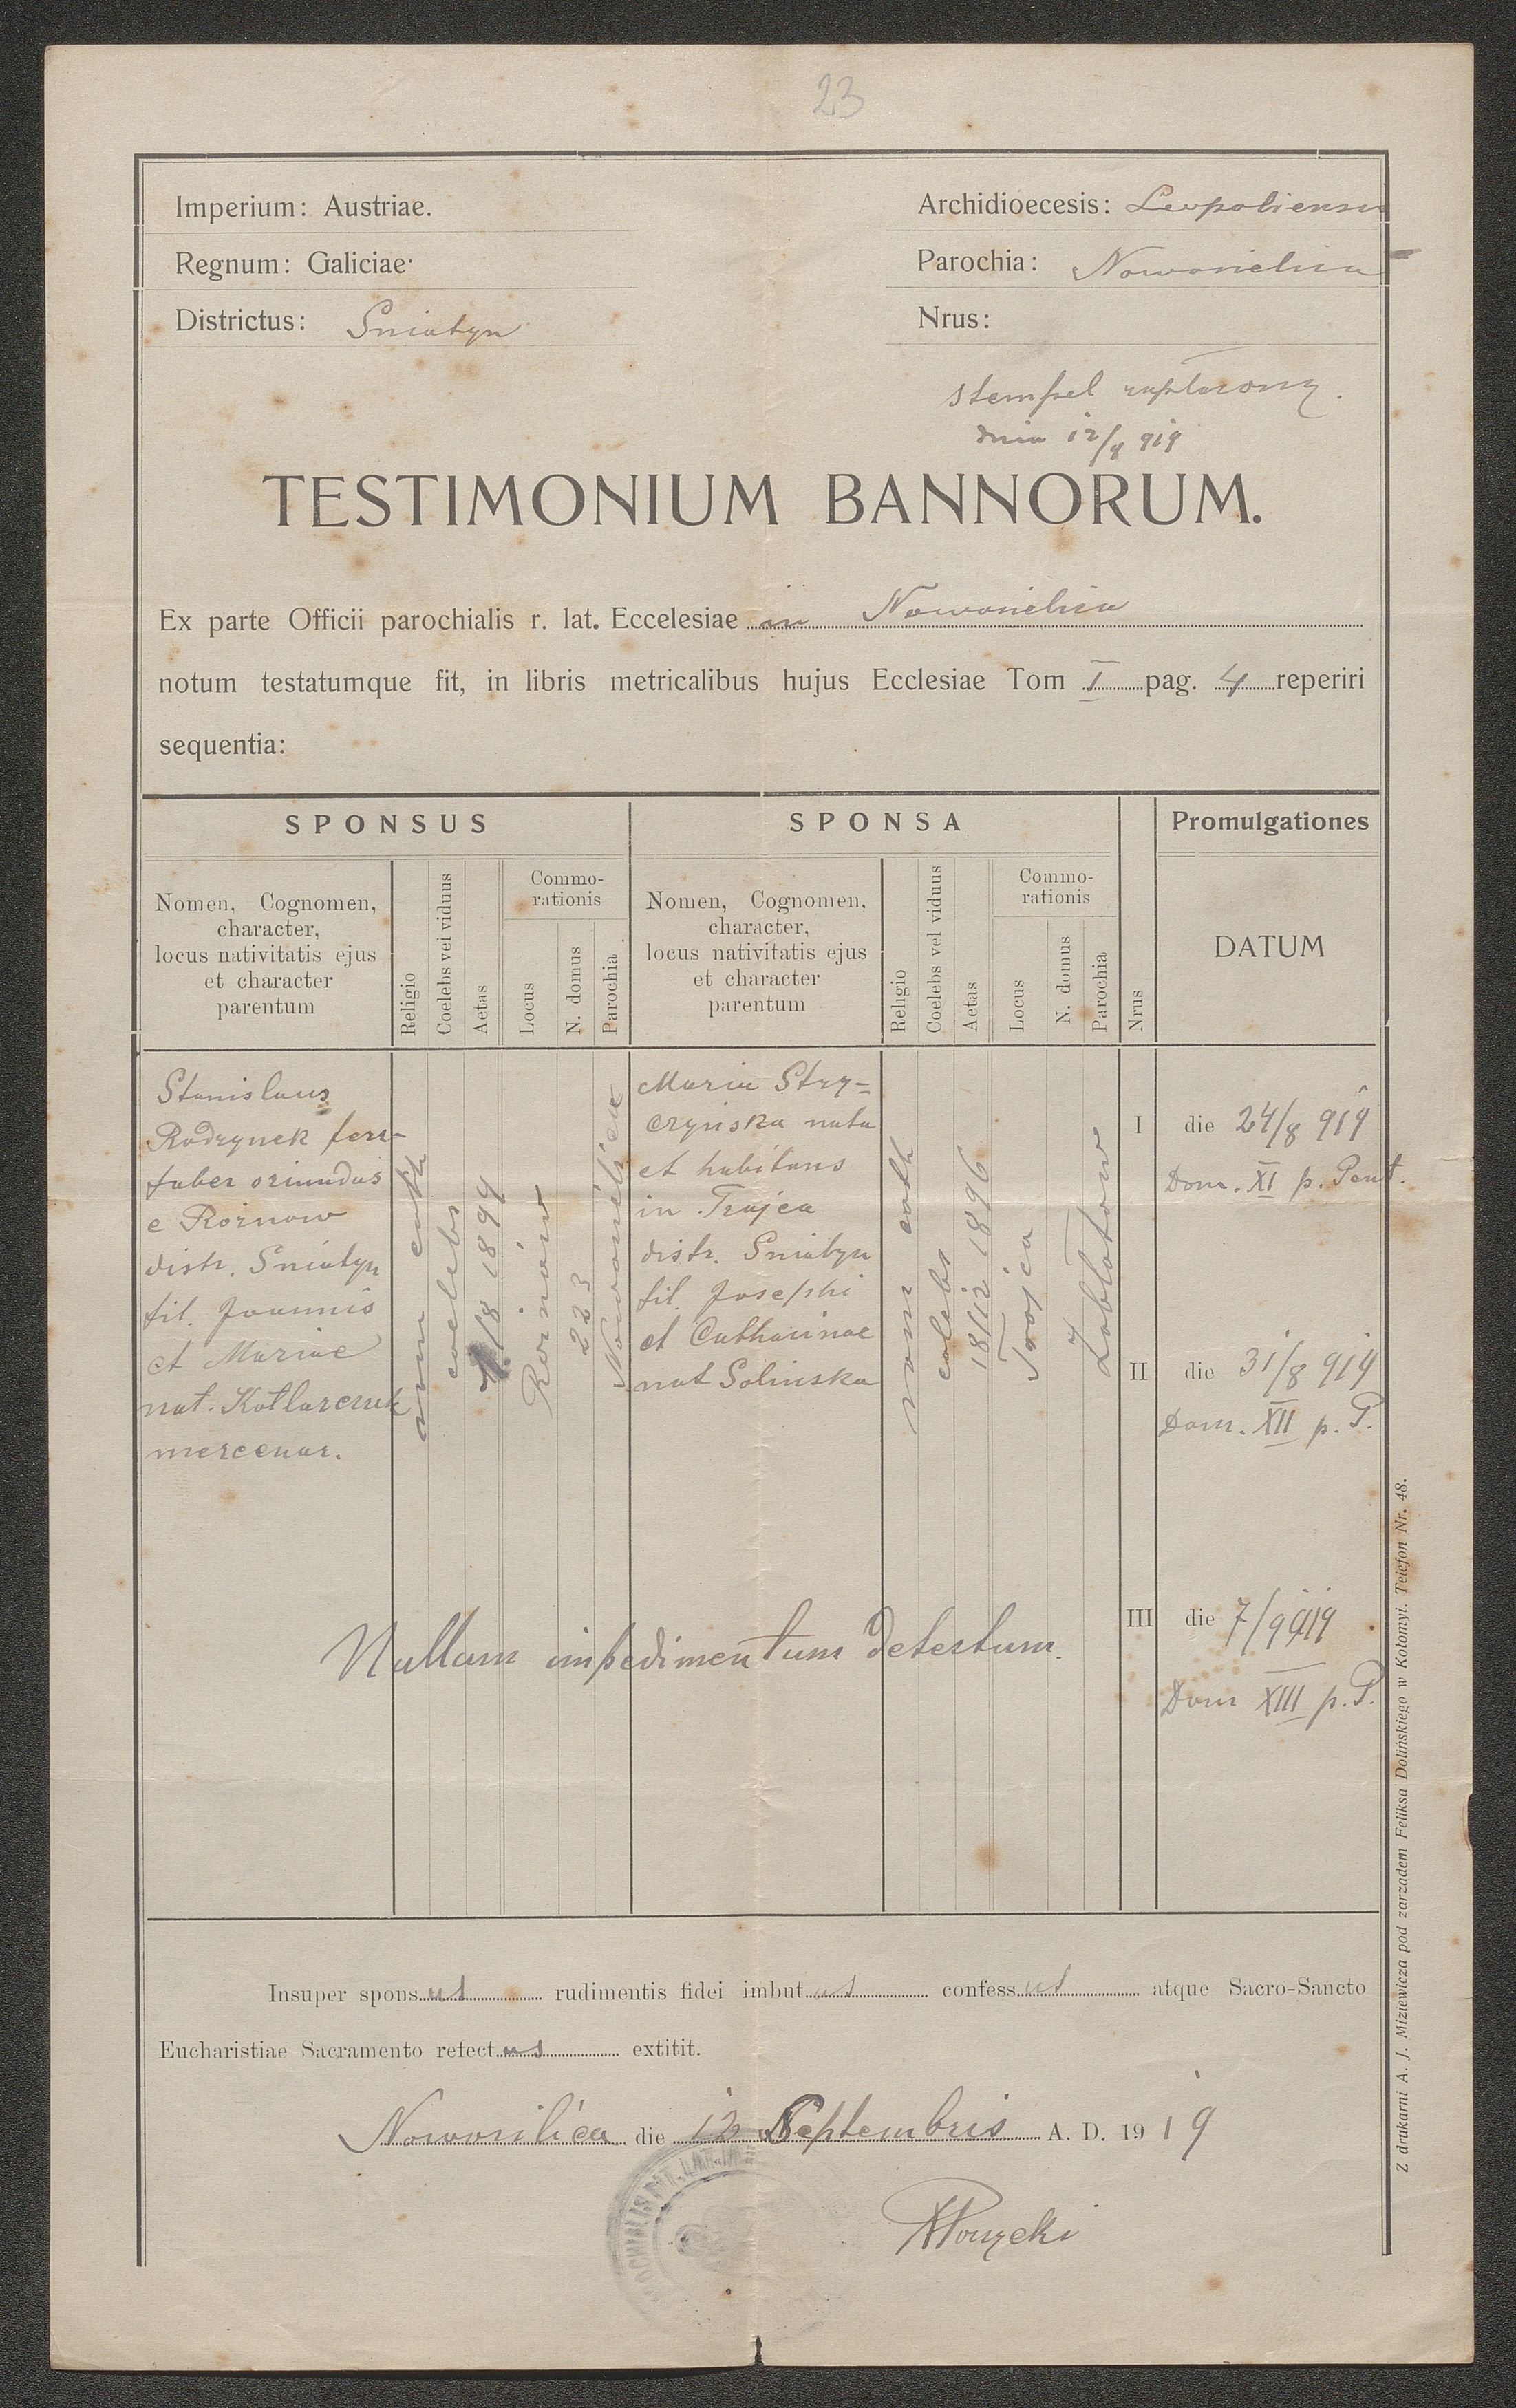 23
Imperium: Austriae.
Archidioecesis: Leopoliensis
Regnum: Galiciae·
Parochia: Nowosielica
Districtus: Sniatyn
Nrus:
stempel zapłacony.
dnia 12/9 919
TESTIMONIUM BANNORUM.
Ex parte Officii parochialis r. lat. Eccelesiae in Nowosielica
notum testatumque fit, in libris metricalibus hujus Ecclesiae Tom I pag. 4 reperiri
sequentia:
SPONSUS
Nomen, Cognomen,
character,
locus nativitatis ejus
et character
parentum
Religio
Coelebs vel viduus
Aetas
Commo-
rationis
Locus
N. domus
Parochia
SPONSA
Nomen, Cognomen,
character,
locus nativitatis ejus
et character
parentum
Religio
Coelebs vel viduus
Aetas
Commo-
rationis
Locus
N. domus
Parochia
Nrus
Promulgationes
DATUM
Stanislaus
Rodzynek ferr-
faber oriundus
e Rożnow
distr. Sniatyn
fil. Joannis
et Mariae
nat. Kotlarczuk
mercenar.
rom cath
coelebs
/8 1899
Rożnów
223
Nowosielica
Maria Stry-
czyńska nata
et habitans
in Trojca
distr. Sniatyn
fil. Josephi
et Catharinae
nat Solinska
rom cath
coelebs
18/12 1896
Trojca
Zabłotow
I die 24/8 919
Dom. XI p. Pent.
II die 31/8 919
Dom. XII p. P.
III die 7/9 919
Dom XIII p. P.
Nullum impedimentum detectum.
Insuper sponsus rudimentis fidei imbutus confessus atque Sacro-Sancto
Eucharistiae Sacramento refectus extitit.
Nowosilica die 12 Septembris A. D. 1919
Z drukarni A. J. Miziewicza pod zarządem Feliksa Dolińskiego w Kołomyi. Telefon Nr. 48.